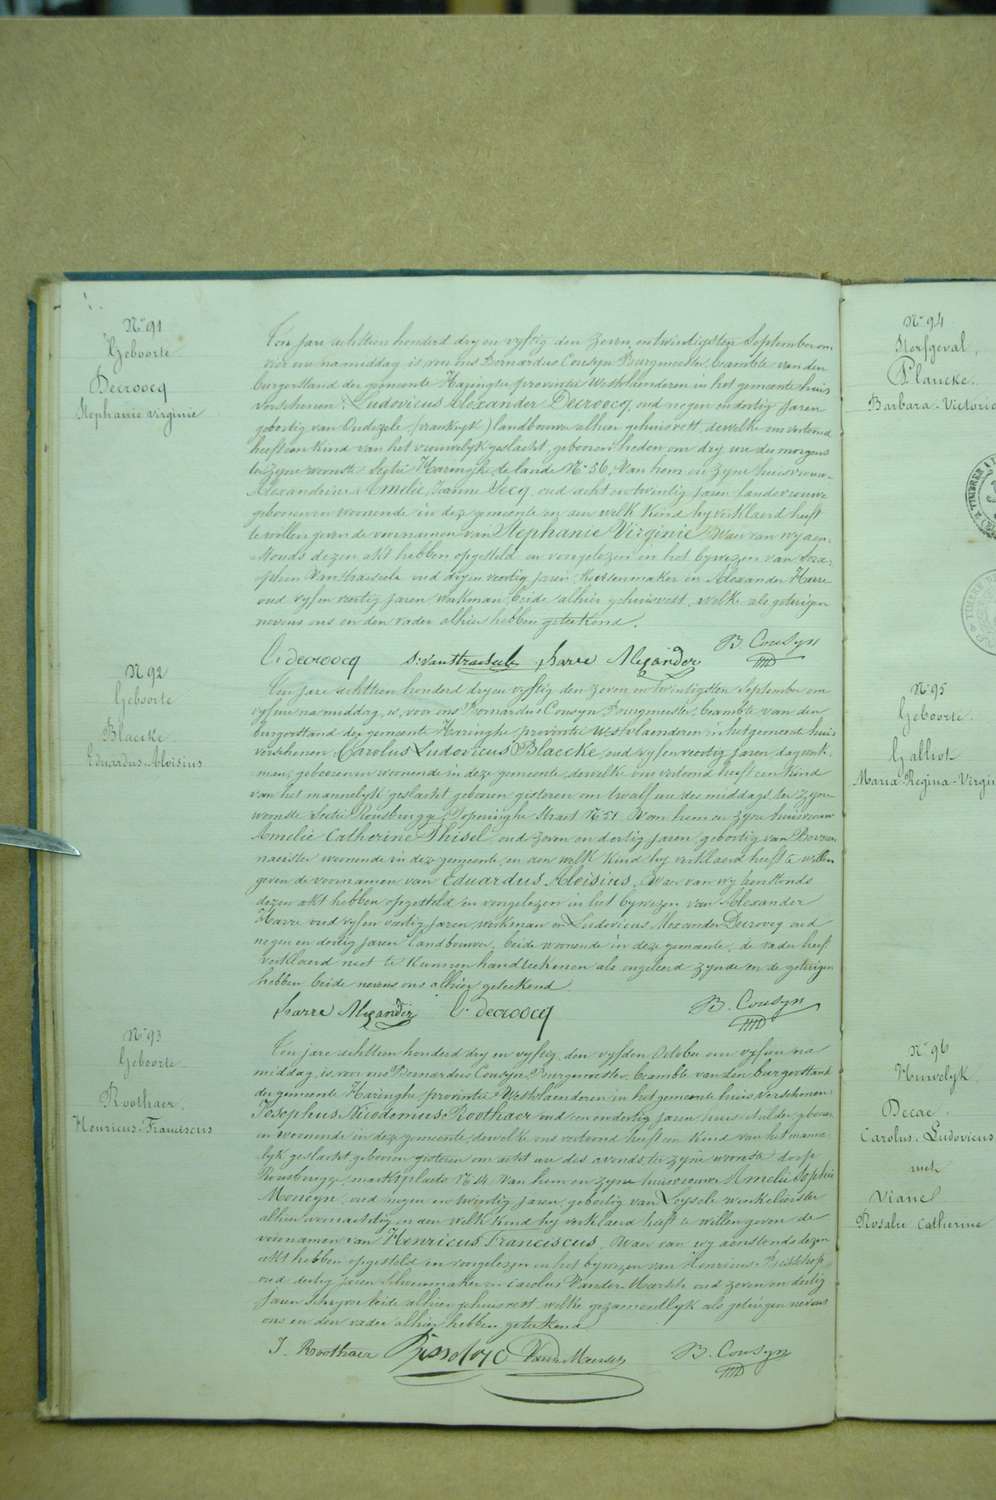 N° 91
Geboorte
Decroocq
Stephanie Virginie
Ten jare achttien honderd dry en vyftig den zeven en twintigsten September om
vier ure namiddag is voor ons Bernardus Cousyn Burgmeester, beambte van den
burgerstand der gemeente Haringhe provintie Westvlaenderen in het gemeente huis
verschenen: Ludovicus Alexander Decroocq, oud negen en dertig Jaren
geboortig van Oudezele (frankryk) landbouwer alhier gehuisvest, dewelke ons vertoond
heeft een kind van het vrouwelyk geslacht, geboren heden om dry ure des morgens
te zyne woonste Sectie Haringhe, de lande N° 56, van hem en zyne huisvrouw
Alexandrine Amelie, Jeanne oud acht en twintig Jaren landvrouwe
geboren en woonende in deze gemeente en aen welk kind hy verklaerd heeft
te willen geven de voornamen van Stephanie Virginie. Waer van wy aen-
stonds dezen akt hebben opgesteld en voorgelezen in het bywezen van
Vanstraeseele oud dry en veertig Jaren, in Alexander Harre
oud vyf en veertig Jaren, werkman, beide alhier gehuisvest, welke als getuigen
nevens ons en den vader alhier hebben geteekend.
L. decroocq Vanstraeseele harre Alexander B. Cousyn
N° 92
Geboorte
Blaecke
Eduardus-Aloisius
Ten jare achttien honderd dry en vyftig den zeven en twintigsten September om
vyf ure namiddag, is voor ons Bernardus Cousyn Burgmeester, beambte van den
burgerstand der gemeente Haringhe provintie Westvlaenderen in het gemeente huis
verschenen Carolus Ludovicus Blaecke, oud vyf en veertig Jaren, dagwerk-
man, geboren en woonende in deze gemeente, dewelke ons vertoond heeft een kind
van het mannelyk geslacht geboren gisteren om twaelf ure des middags, ter zyne
woonste Sectie Rousbrugge, Poperinghe Straet N° 51. Van hem en zyne huisvrouw
Amelie Catherine Thisel, oud zeven en dertig Jaren, geboortig van
woonende in deze gemeente, en aen welk kind hy verklaerd heeft te willen
geven de voornamen van Eduardus Aloisius. Waer van wy aenstonds
dezen akt hebben opgesteld en voorgelezen in het bywezen van Alexander
Harre oud vyf en veertig Jaren, werkman en Ludovicus Alexander Decroocq oud
negen en dertig Jaren landbouwer, beide woonende in deze gemeente, de vader heeft
verklaerd niet te kunnen handteekenen als ongeleerd zynde en de getuigen
hebben beide nevens ons alhier geteekend
harre Alexander L. decroocq B. Cousyn
N° 93
Geboorte
Roothaer.
Henricus-Franciscus
Ten jare achttien honderd dry en vyftig, den vyfden October om vyf ure na
middag, is voor ons Bernardus Cousyn, Burgemeester, beambte van den burgerstand
der gemeente Haringhe provintie Westvlaenderen in het gemeente huis verschenen:
Josephus Nicodemus Roothaer oud een en dertig Jaren, huis schilder geboren
en woonende in deze gemeente, dewelke ons vertoond heeft een kind van het manne
lyk geslacht geboren gisteren om acht ure des avonds, ter zyne woonste dorp
Rousbrugge, marktplaets N° 14. Van hem en zyne huisvrouw Amelie Sophie
oud negen en twintig Jaren, geboortig van Leysele
alhier woonachtig en aen welk kind hy verklaerd heeft te willen geven de
voornamen van Henricus franciscus. Waer van wy aenstonds dezen
akt hebben opgesteld en voorgelezen in het bywezen van Henricus
oud dertig Jaren Schoenmaker en Carolus Vander Meersch oud zeven en dertig
Jaren schryver beide alhier gehuisvest, welke gezamentlyk als getuigen nevens
ons en den vader alhier hebben geteekend
J. Roothaer B. Cousyn
N° 94
Sterfgeval.
Plancke.
Barbara-Victoria
N° 95
Geboorte.
Galliot
Maria-Regina-Virgin
N° 96
Huwelyk.
Decae.
Carolus-Ludovicus
met
Vianel
Rosalie Catherine